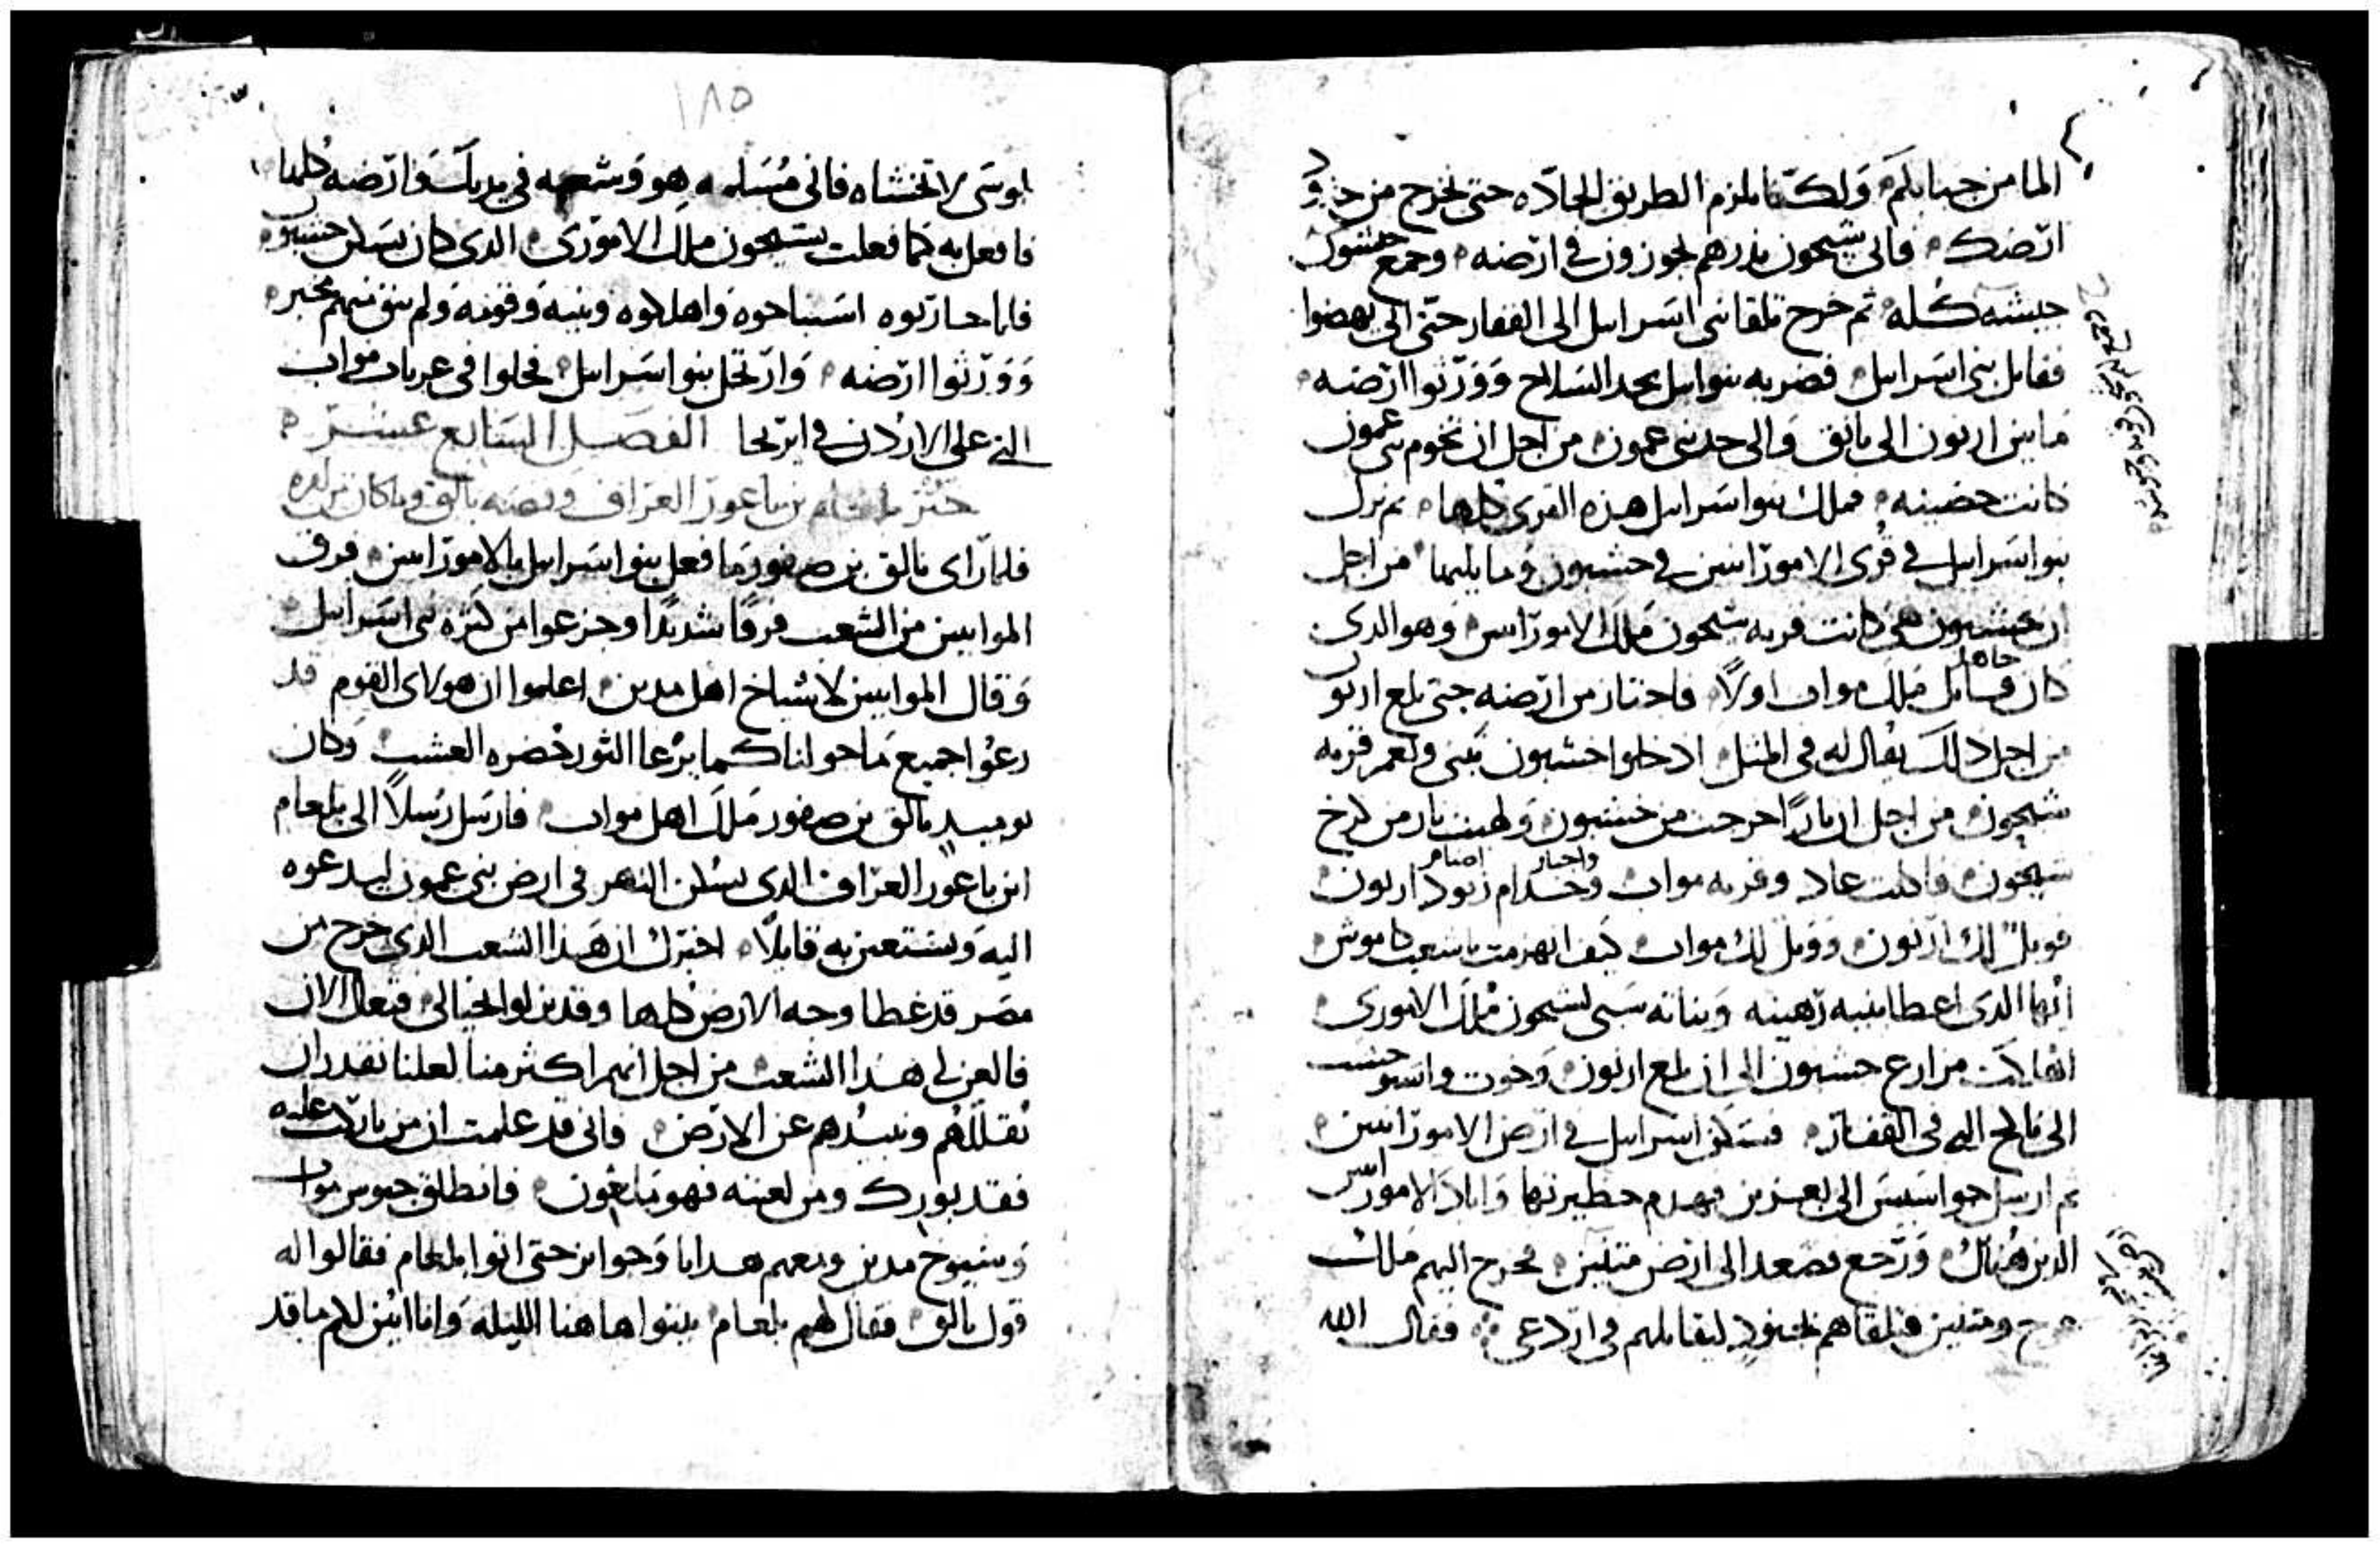 الما من جبابكم ولكننا نلزم الطريق الجاده حتى نخرج من حدود
ارضك فابى شيحون يذرهم يجوزون في ارضه وجمع شيحون
جيشه كله ثم خرج تلقا بني اسرايل الى القفار حتى اتى يهصوا
فقابل بني اسرايل فضربه بنو اسرايل بحد السلاح وورثوا ارضه
ما بين ارنون الى يابق والى حد بني عمون من اجل ان تخوم بني عمون
كانت حصينه فملك بنو اسرايل هذه القرى كلها ثم نزل
بنو اسرايل في قرى الاموراسن في حشبون وما يليها من اجل
ان حشبون هي كانت قريه شيحون ملك الاموراسن وهو الذي
كان قاتل ملك مواب اولا فاحتاز من ارضه حتى بلغ ارنون
من اجل ذلك يقال له في المثل ادخلوا حشبون تبنى وتعمر قريه
شيحون من اجل ان نارا خرجت من حشبون ولهيب نار من كرخ
شيحون فاكلت عاد وقريه مواب وخدام زنود ارنون
واحبار اصنام
فويل لك ارنون وويل لك مواب كيف انهزمت يا شعب كاموش
ايها الذي اعطا بنيه رهينه وبناته سبى لشيحون ملك الاموري
الى فالح التي في القفار فسكن اسرايل في ارض الاموراسن
ثم ارسل جواسيس الى يعزير فهدم حظيرتها واباد الاموراسن
الذين هناك ورجع فصعد الى ارض متنين فخرج اليهم ملك
ومتنين فتلقاهم بجنود ليقاتلهم في اردعي فقال الله
١٨٥
لموسى لا تخشاه فاني مسلمه هو وشعبه في يديك وارضه كلها
فافعل به كما فعلت بشيحون ملك الاموري الذي كان يسكن حشبون
فلما حاربوه استباحوه واهلكوه وبنيه وقومه ولم يبق منهم مخبر
وورثوا ارضه وارتحل بنو اسرايل فحلوا في عربات مواب
التي على الاردن في ايريحا الفصل السابع عشر
خبر بلعام بن باعور العراف وقصه بالق وما كان من امره
فلما راى بالق بن صفور ما فعل بنو اسرايل بالاموراسن فرق
الموابيين من الشعب فرقا شديدا وجزعوا من كثره بني اسرايل
وقال الموابيين لاشياخ اهل مدين اعلموا ان هولاى القوم قد
رعوا جميع ما حولنا كما يرعا الثور خضره العشب وكان
يوميذ بالق بن صفور ملك اهل مواب فارسل رسلا الى بلعام
ابن باعور العراف الذي يسكن النهر في ارض بني عمون ليدعوه
اليه ويستعين به قايلا اخبرك ان هذا الشعب الذي خرج من
مصر قد غطا وجه الارض كلها وقد نزلوا بحيالي فتعال الان
فالعن لي هذا الشعب من اجل انهم اكثر منا لعلنا نقدر ان
نقللهم ونبيدهم عن الارض فاني قد علمت ان من باركت عليه
فقد بورك ومن لعنته فهو ملعون فانطلق حبوس مواب
وشيوخ مدين ومعهم هدايا وجوايز حتى اتوا بلعام فقالوا له
قول بالق فقال لهم بلعام بيتوا هاهنا الليله وانا ابين لكم ما قد